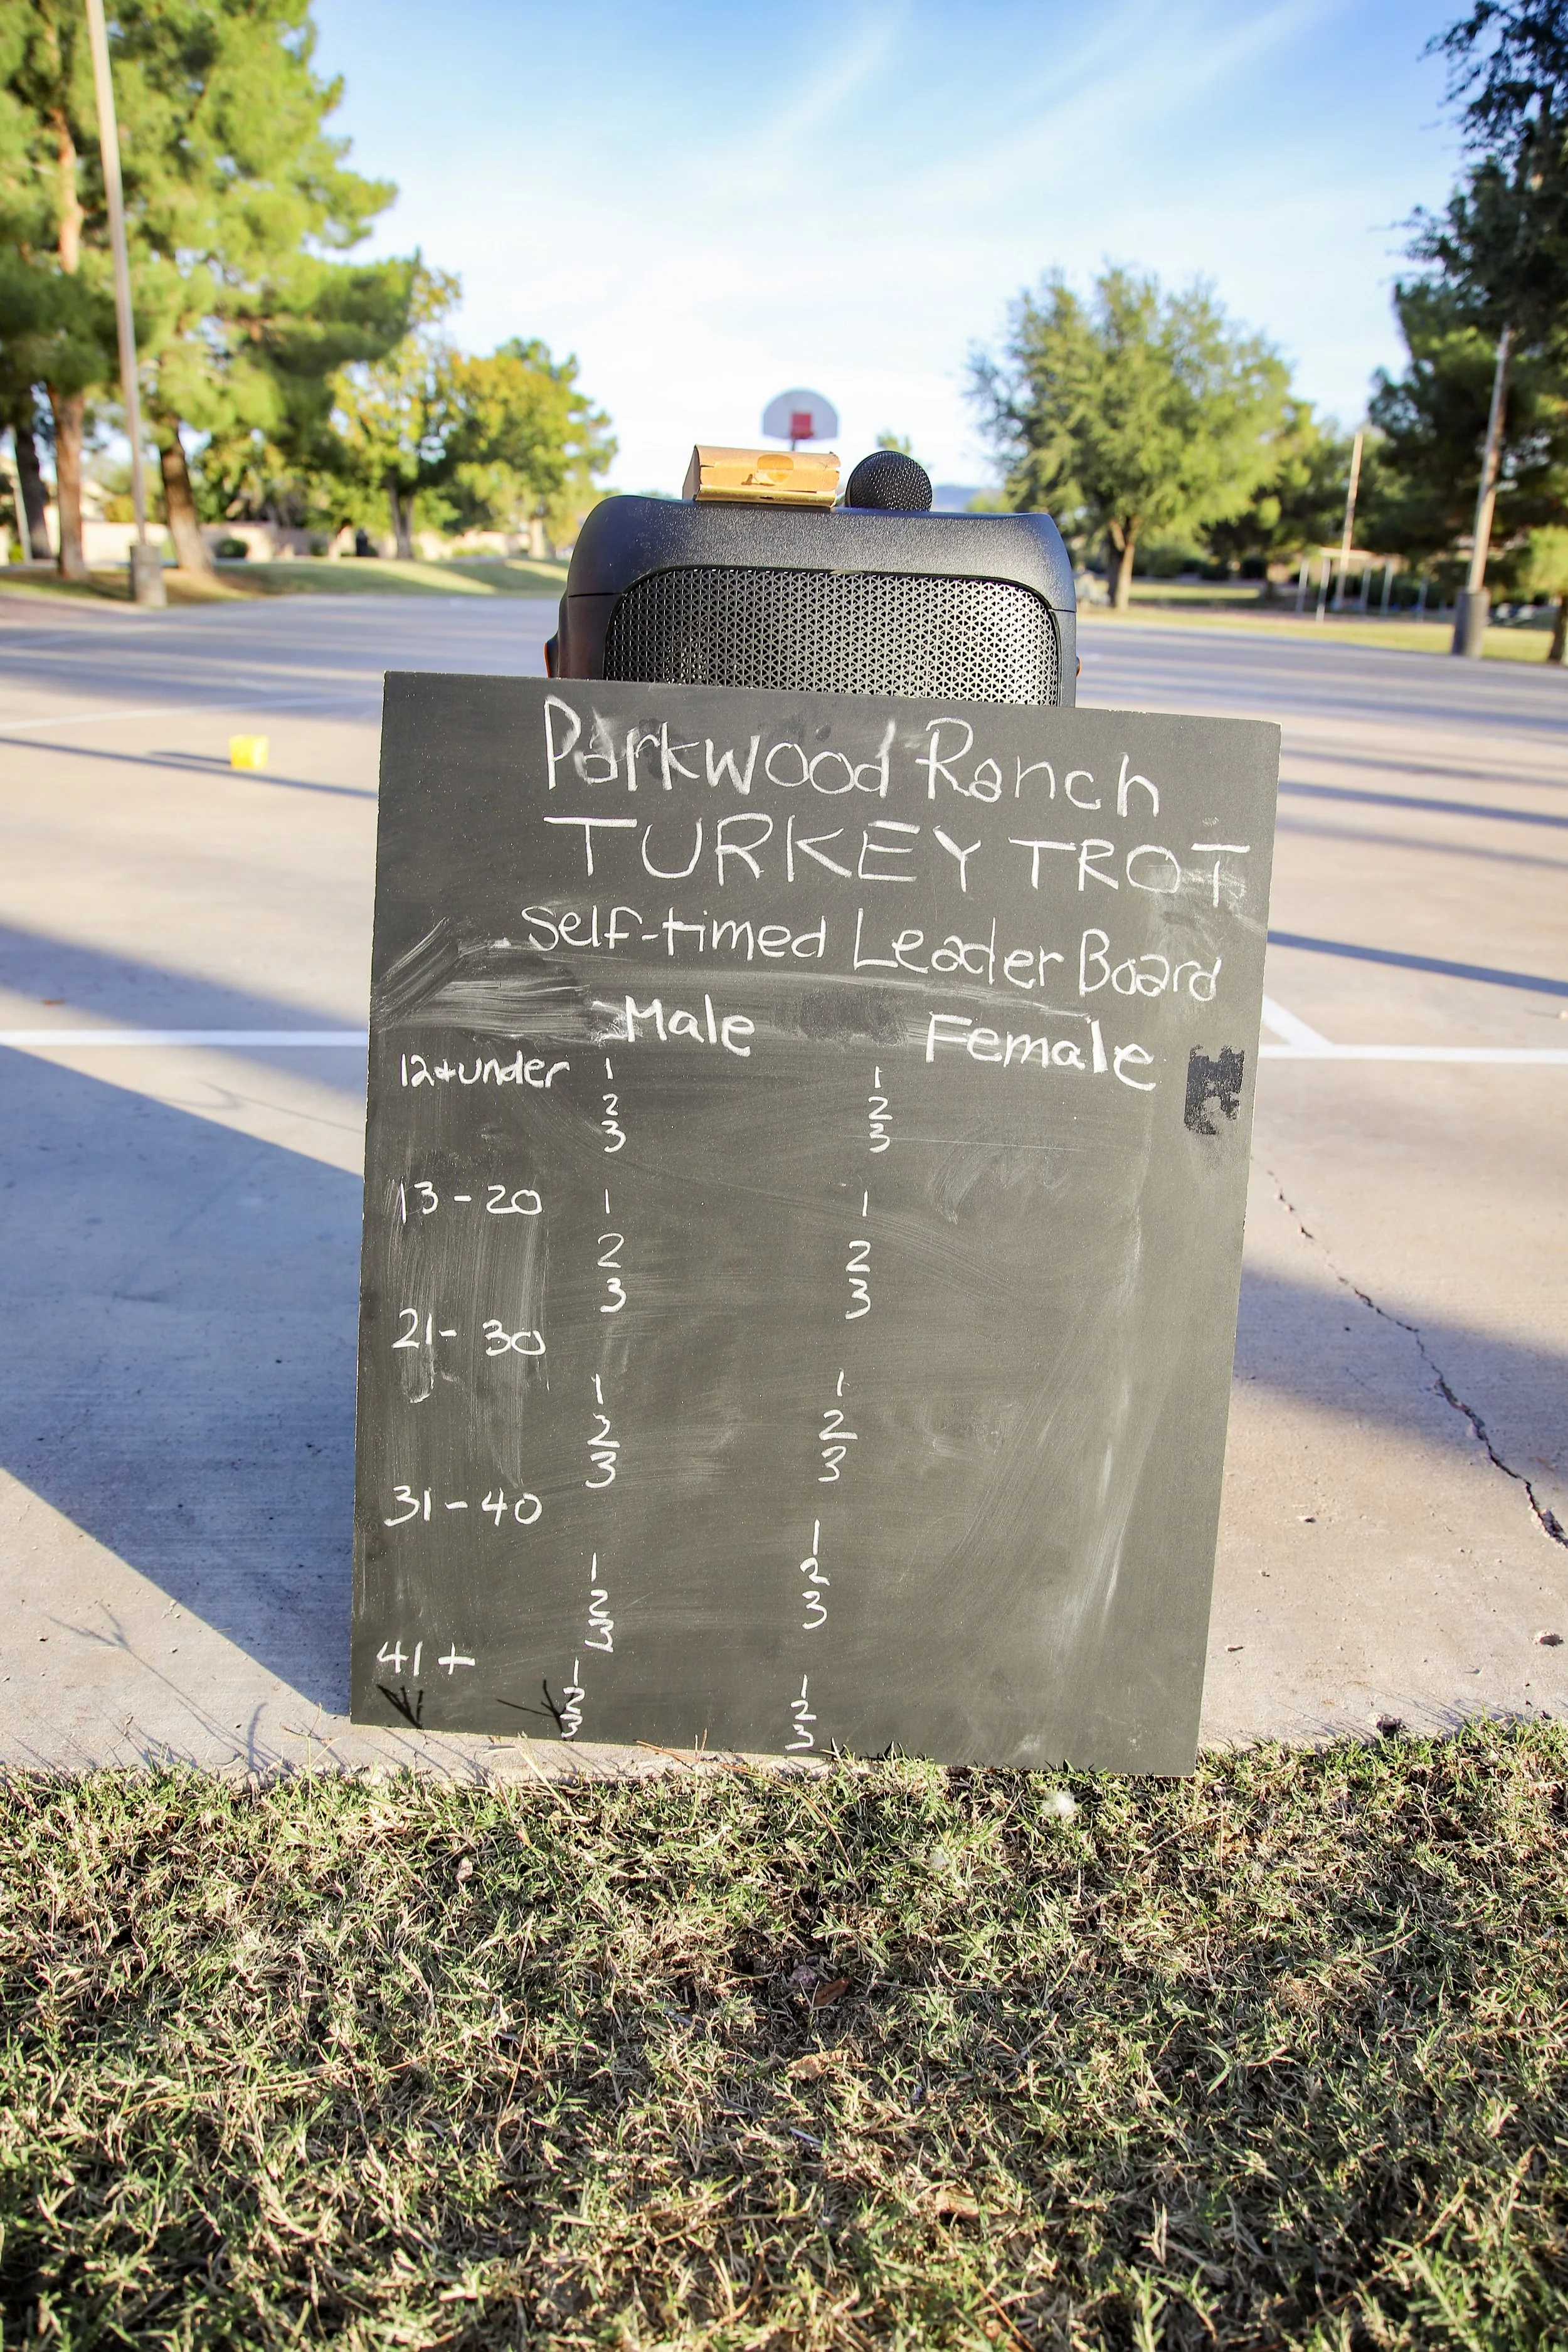 Parkwood Ranch
TURKEY TROT
Self-timed Leader Board
Male Female
12+under 1 1
2 2
3 3
13-20 1 1
2 2
3 3
21-30
1 1
2 2
3 3
31-40
1 1
2 2
3 3
41+
1 1
2 2
3 3